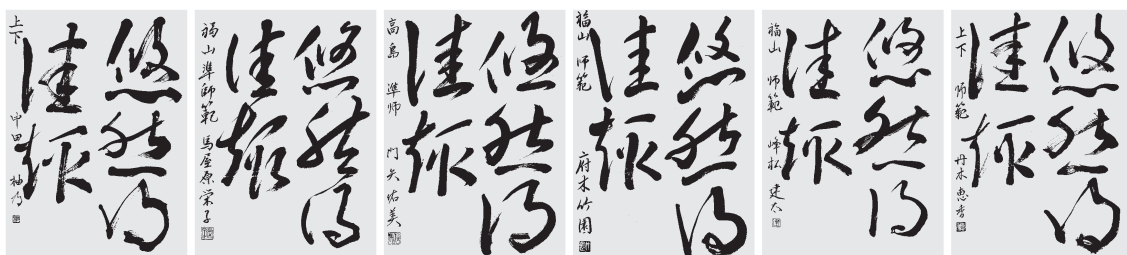 悠然得
佳趣
上下 中田
悠然得
佳趣
福山 準師範 馬屋原栄子
悠然得
佳趣
高島 準师 門矢佑美
悠然得
佳趣
福山 师範 府木竹園
悠然得
佳趣
福山 师範 峰松
悠然得
佳趣
上下 师範 恵香